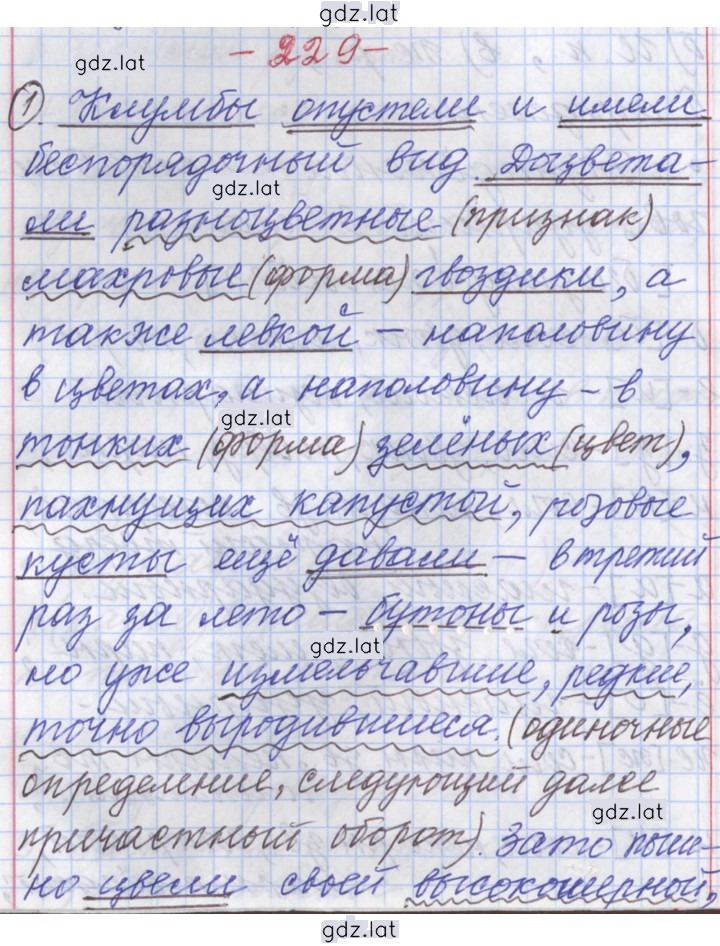 gdz.lat
gdz.lat
- 229 -
1. Клумбы опустели и имели
беспорядочный вид. Доцвета-
gdz.lat
ли разноцветные (признак)
махровые (форма) гвоздики, а
также левкой – наполовину
в цветах, а наполовину – в
gdz.lat
тонких (форма) зелёных (цвет),
пахнущих капустой, розовые
кусты ещё давали – в третий
раз за лето – бутоны и розы,
gdz.lat
но уже измельчавшие, редкие,
gdz.lat
точно выродившиеся. (одиночные
определение, следующий далее
gdz.lat
причастный оборот). Зато пыш-
но цвели своей высокомерной,
gdz.lat